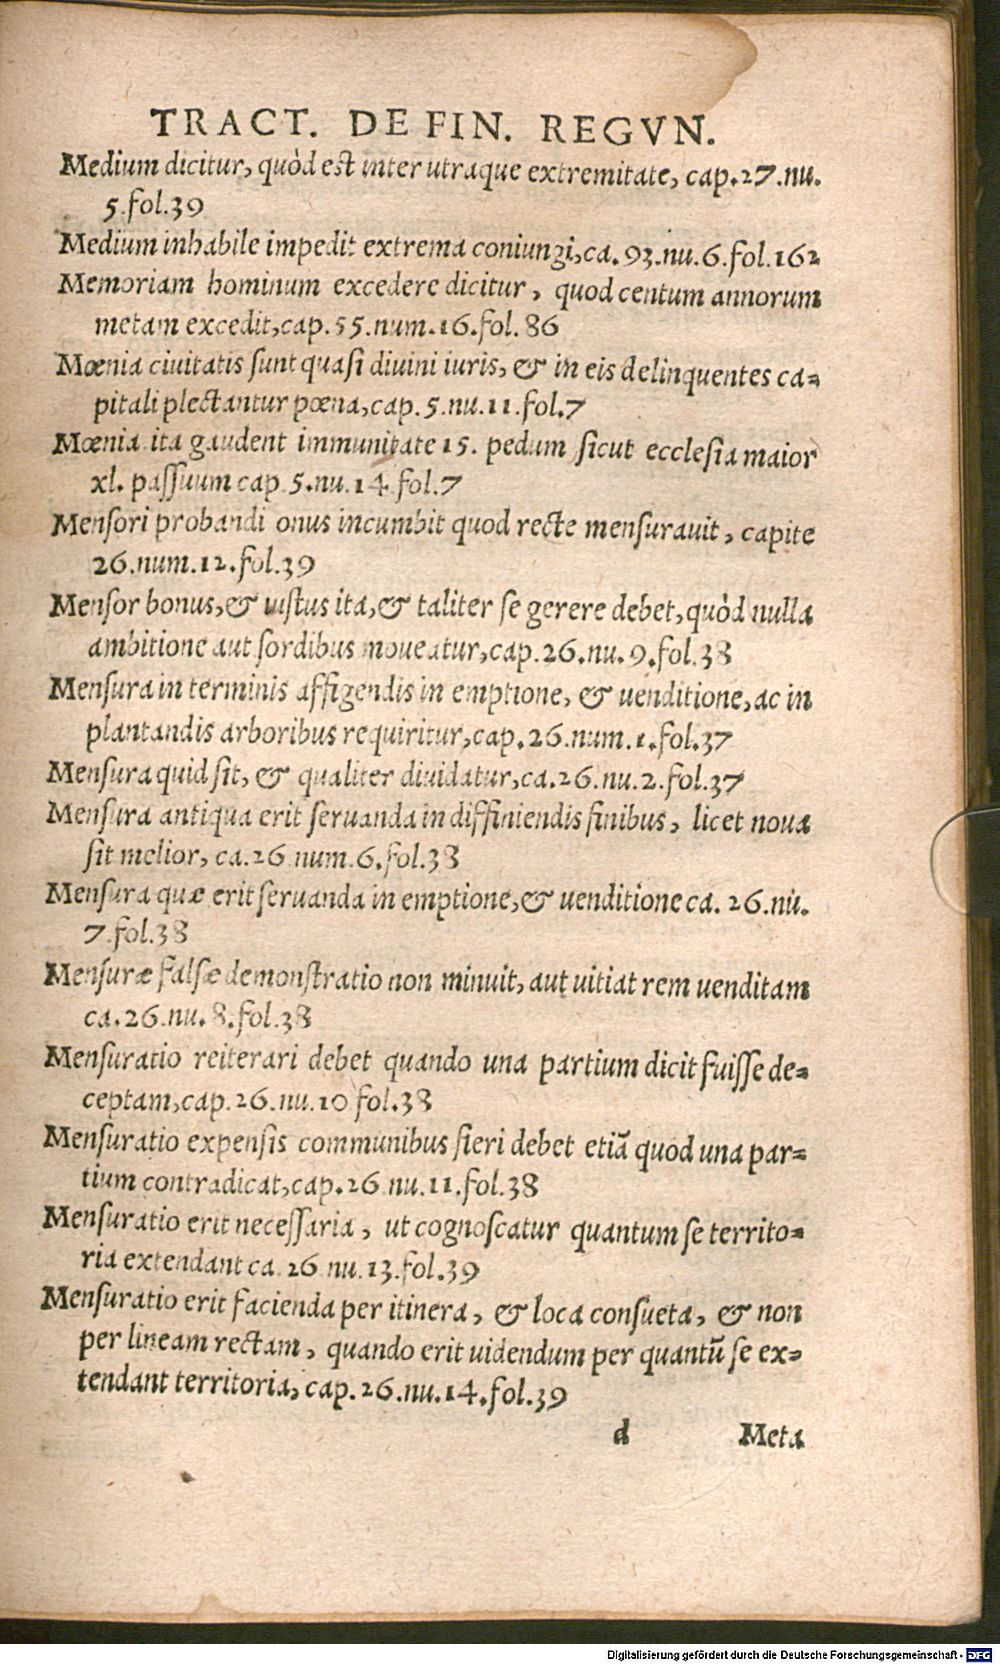 TRACT. DE FIN. REGVN.
Medium dicitur, quòd est inter utraque extremitate, cap.27.nu.
5.fol.39
Medium inhabile impedit extrema coniungi,ca.93.nu.6.fol.162
Memoriam hominum excedere dicitur, quod centum annorum
metam excedit,cap.55.num.16.fol.86
Mœnia ciuitatis sunt quasi diuini iuris, & in eis delinquentes ca-
pitali plectantur pœna,cap.5.nu.11.fol.7
Mœnia ita gaudent immunitate 15. pedum sicut ecclesia maior
xl. passuum cap.5.nu.14.fol.7
Mensori probandi onus incumbit quod recte mensurauit, capite
26.num.12.fol.39
Mensor bonus,& iustus ita,& taliter se gerere debet,quòd nulla
ambitione aut sordibus moueatur,cap.26.nu.9.fol.38
Mensura in terminis affigendis in emptione, & uenditione, ac in
plantandis arboribus requiritur,cap.26.num.1.fol.37
Mensura quid sit, & qualiter diuidatur,ca.26.nu.2.fol.37
Mensura antiqua erit seruanda in diffiniendis finibus, licet noua
sit melior, ca.26 num.6.fol.38
Mensura quæ erit seruanda in emptione,& uenditione ca. 26.nu.
7.fol.38
Mensuræ falsæ demonstratio non minuit, aut uitiat rem uenditam
ca.26.nu.8.fol.38
Mensuratio reiterari debet quando una partium dicit fuisse de-
ceptam,cap.26.nu.10 fol.38
Mensuratio expensis communibus fieri debet etiã quod una par-
tium contradicat,cap.26 nu.11.fol.38
Mensuratio erit necessaria, ut cognoscatur quantum se territo-
ria extendant ca.26 nu.13.fol.39
Mensuratio erit facienda per itinera, & loca consueta, & non
per lineam rectam, quando erit uidendum per quantũ se ex-
tendant territoria, cap.26.nu.14.fol.39
d Meta
Digitalisierung gefördert durch die Deutsche Forschungsgemeinschaft - DFG